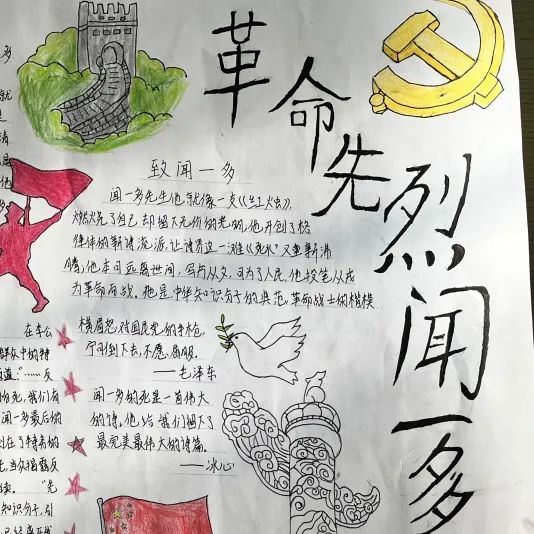 革命先烈闻一多
致闻一多
闻一多先生他就像一支《红烛》,
燃烧了自己却留下无价的光明,他开创了格
律体的新诗流派,让诗界这一滩《死水》又重新沸
腾,他本可远离世间,写与从文,可为了人民,他投笔从戎
为革命而战。他是中华知识分子的典范,革命战士的楷模。
横眉怒对国民党的手枪,
宁可倒下去,不愿屈服。
——毛泽东
闻一多的死是一首伟大
的诗。他给我们留下了
最完美最伟大的诗篇。
——冰心
多
就
是
清
他
在李公
群众中的特
道:"……反
怕死,我们有
闻一多最后的
在了特务的
先
知识分子,引